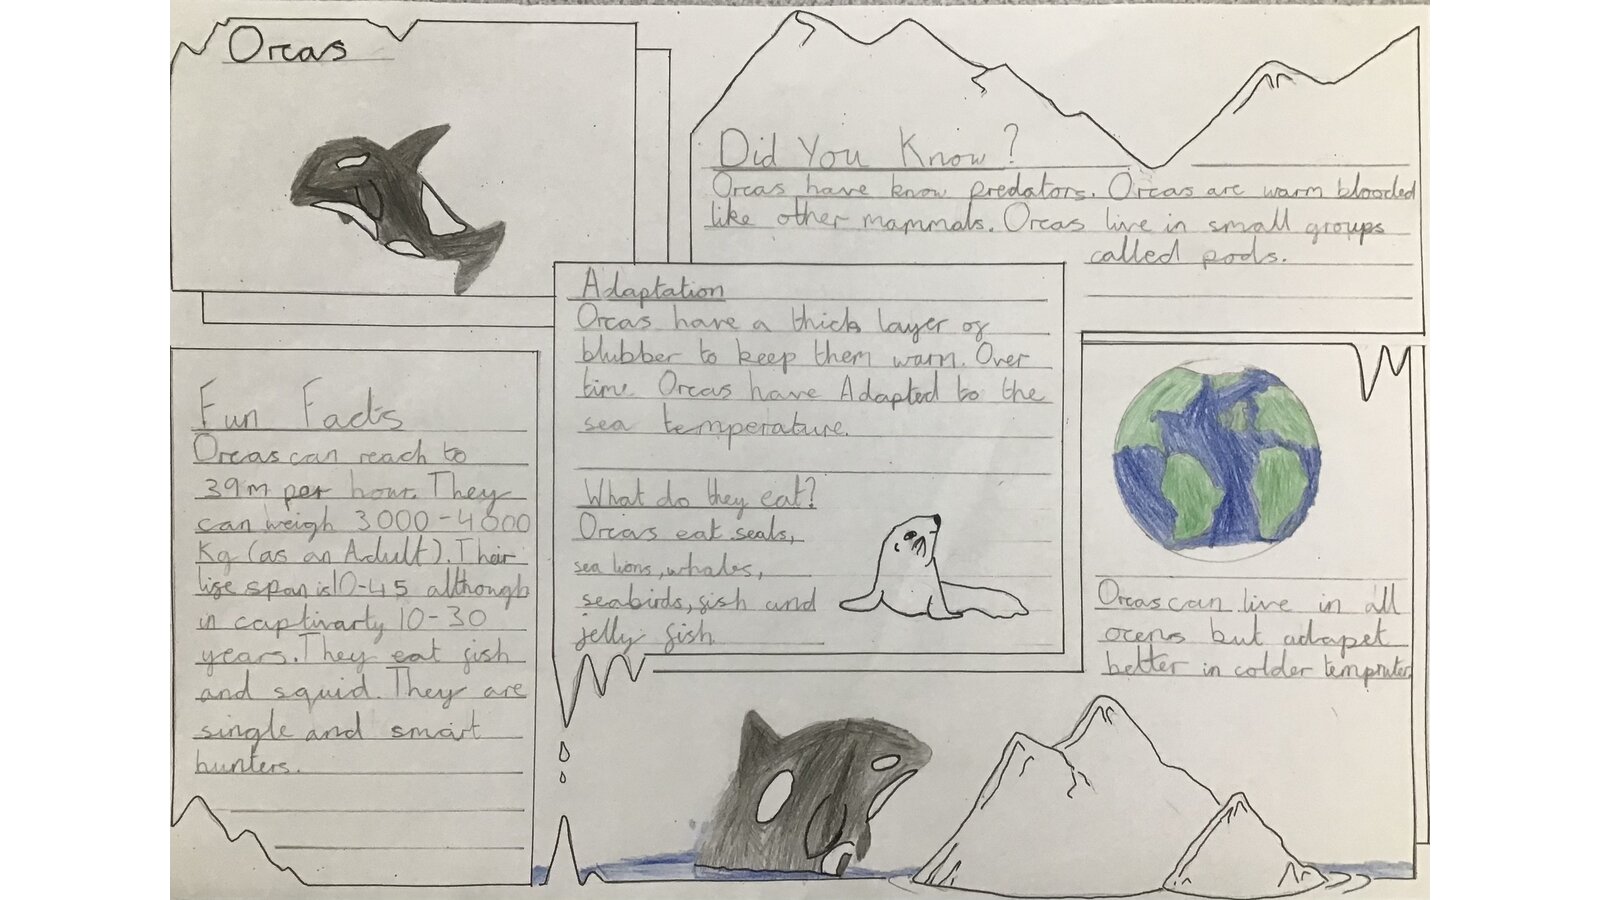 Orcas
Did You Know?
Orcas have know predators. Orcas are warm blooded
like other mammals. Orcas live in small groups
called pods.
Adaptation
Orcas have a thick layer of
blubber to keep them warm. Over
time Orcas have Adapted to the
sea temperature.
What do they eat?
Orcas eat seals,
sea lions, whales,
seabirds, fish and
jelly fish
Fun Facts
Orcas can reach to
39m per hour. They
can weigh 3000-4000
Kg (as an Adult). Their
life span is 10-45 although
in captivarty 10-30
years. They eat fish
and squid. They are
single and smart
hunters.
Orcas can live in all
ocens but adapet
better in colder tempruter